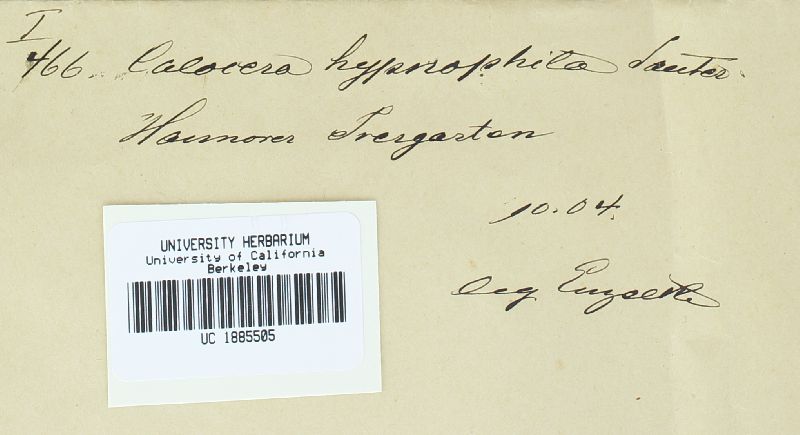 I
466. Calocera hypnophila Sauter.
Hannover Tiergarten
10.04.
leg Engelke
UNIVERSITY HERBARIUM
University of California
Berkeley
UC 1885505